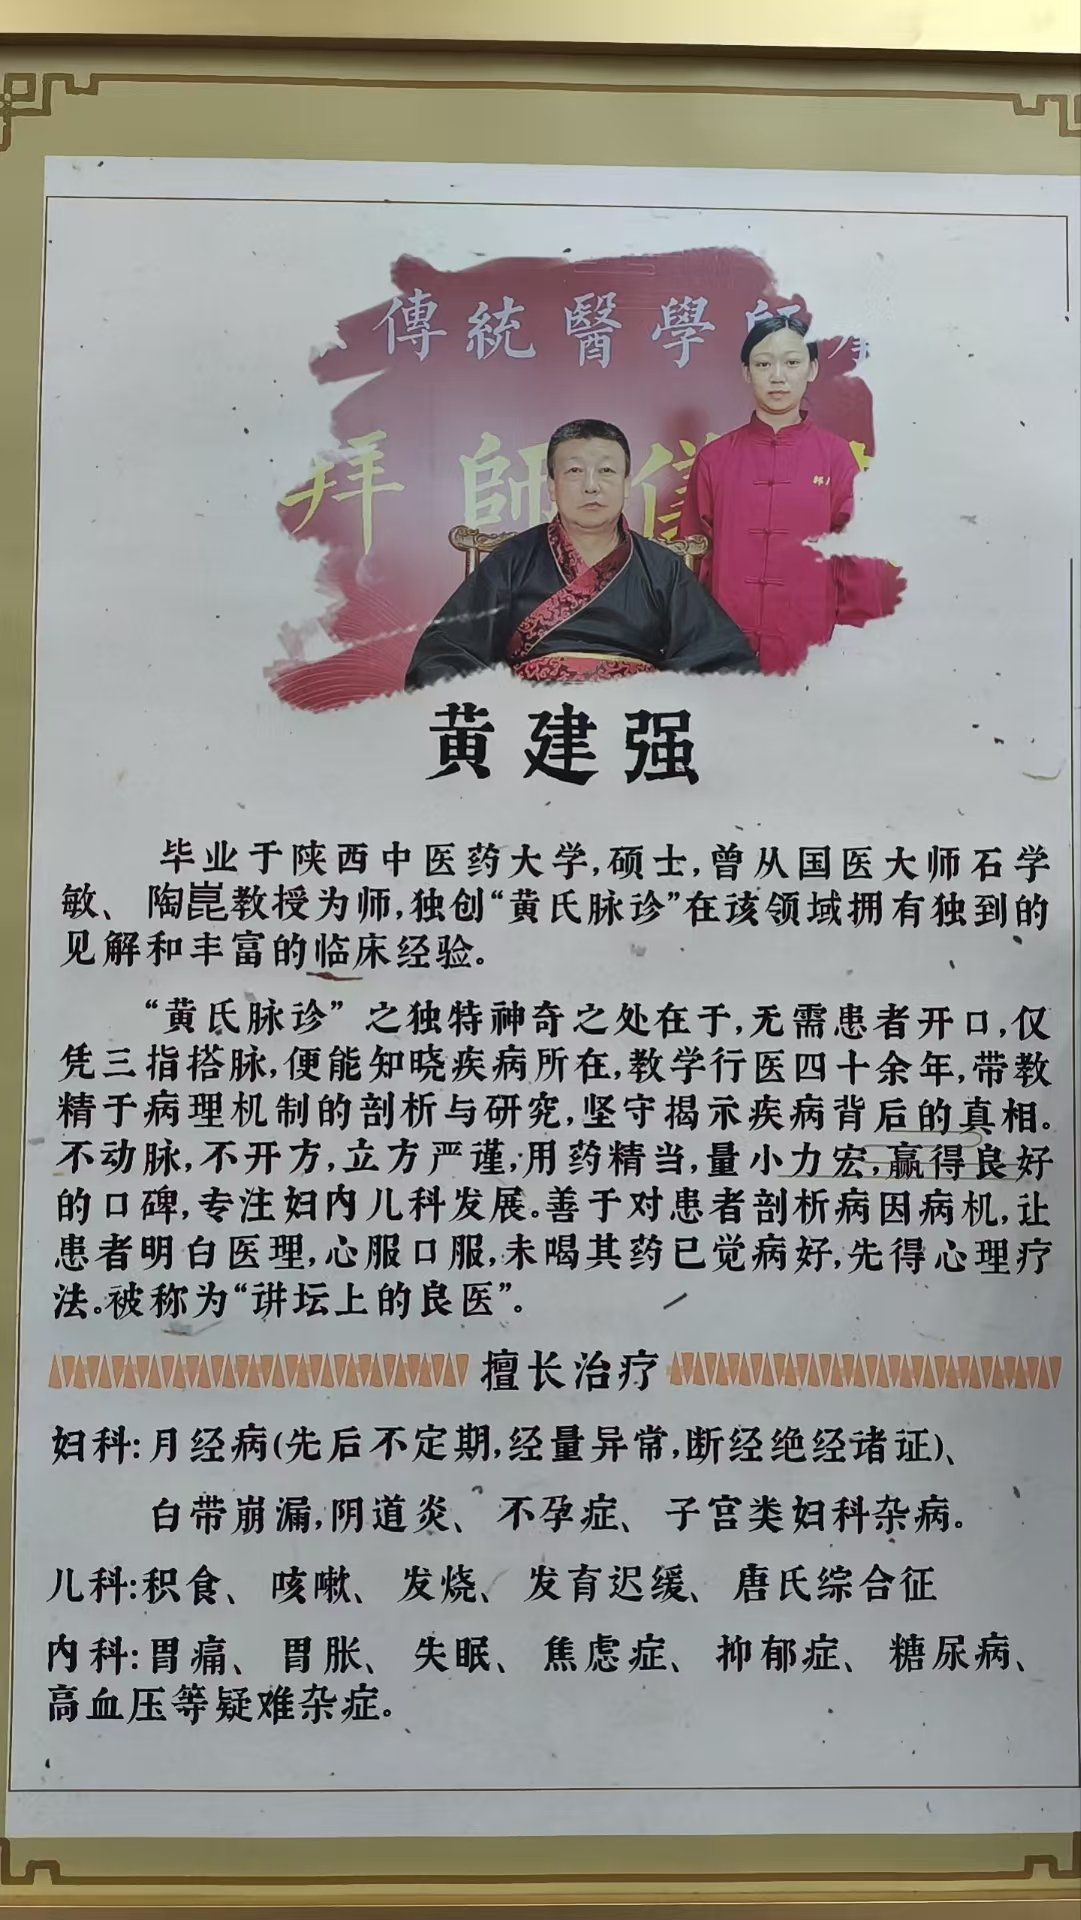 傳統醫學師
拜師儀
黄建强
毕业于陕西中医药大学,硕士,曾从国医大师石学
敏、陶崑教授为师,独创“黄氏脉诊”在该领域拥有独到的
见解和丰富的临床经验。
“黄氏脉诊”之独特神奇之处在于,无需患者开口,仅
凭三指搭脉,便能知晓疾病所在,教学行医四十余年,带教
精于病理机制的剖析与研究,坚守揭示疾病背后的真相。
不动脉,不开方,立方严谨,用药精当,量小力宏,赢得良好
的口碑,专注妇内儿科发展。善于对患者剖析病因病机,让
患者明白医理,心服口服,未喝其药已觉病好,先得心理疗
法。被称为“讲坛上的良医”。
擅长治疗
妇科:月经病(先后不定期,经量异常,断经绝经诸证)、
白带崩漏,阴道炎、不孕症、子宫类妇科杂病。
儿科:积食、咳嗽、发烧、发育迟缓、唐氏综合征
内科:胃痛、胃胀、失眠、焦虑症、抑郁症、糖尿病、
高血压等疑难杂症。